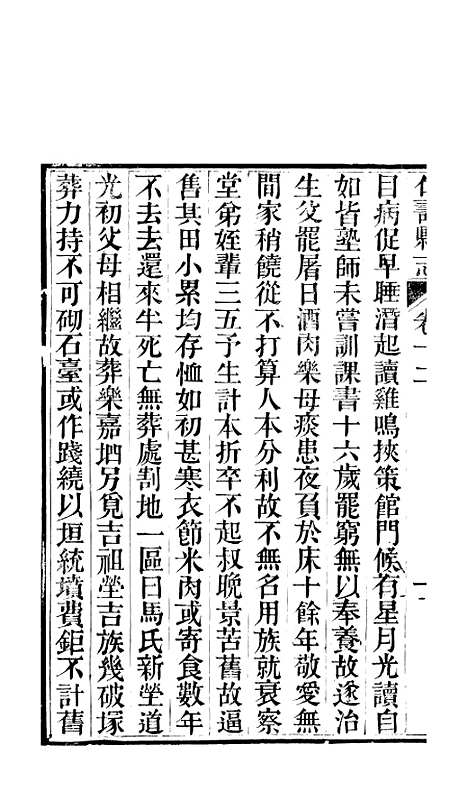 仁壽縣志 卷十二
目病促早睡潛起讀雞鳴挾策館門候有星月光讀自
如皆塾師未嘗訓課書十六歲罷窮無以奉養故遂治
生父罷屠日酒肉樂母痰患夜負於床十餘年敬愛無
間家稍饒從不打算人本分利故不無名用族就衰察
堂弟姪輩三五予生計本折卒不起叔晚景苦舊故逼
售其田小累均存恤如初甚寒衣節米肉或寄食數年
不去去還來半死亡無葬處割地一區曰馬氏新塋道
光初父母相繼故葬樂嘉垇另覓吉祖塋吉族幾破塚
葬力持不可砌石臺或作踐繞以垣統墳費鉅不計舊